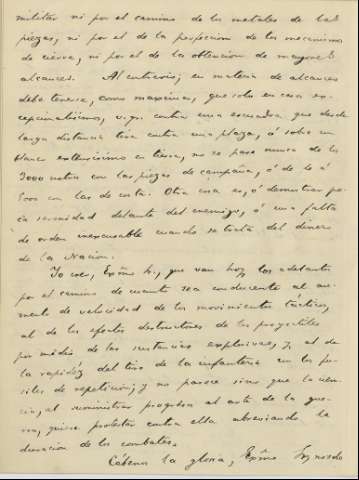 militar ni por el camino de los metales de las
piezas, ni por el de la perfeccion de los mecanismos
de cierre, ni por el de la obtencion de mayores
alcances. Al contrario; en materia de alcances
debe tenerse, como maxima, que solo en caso ex-
cepcionalisimo, v. gr. contra una escuadra que desde
larga distancia tira contra una plaza, ó sobre un
blanco extensisimo en tierra, no se pase nunca de los
3000 metros con las piezas de campaña, ó de
con las de costa. Otra cosa es, ó demostrar po-
ca serenidad delante del enemigo, ó una falta
de orden inexcusable cuando se trata del dinero
de la Nacion.
Yo creo, Exmo Sr, que van hoy los adelantos
por el camino de cuanto sea conducente al au-
mento de velocidad de los movimientos tácticos,
al de los efectos destructores de los proyectiles
por medio de las sustancias explosivas, y al de
la rapidez del tiro de la infanteria con los fu-
siles de repeticion; y no parece sino que la cien-
cia, al suministrar progresos al arte de la gue-
rra, quiere protestar contra ella abreviando la
duracion de los combates.
Cábeme la gloria, Exmo